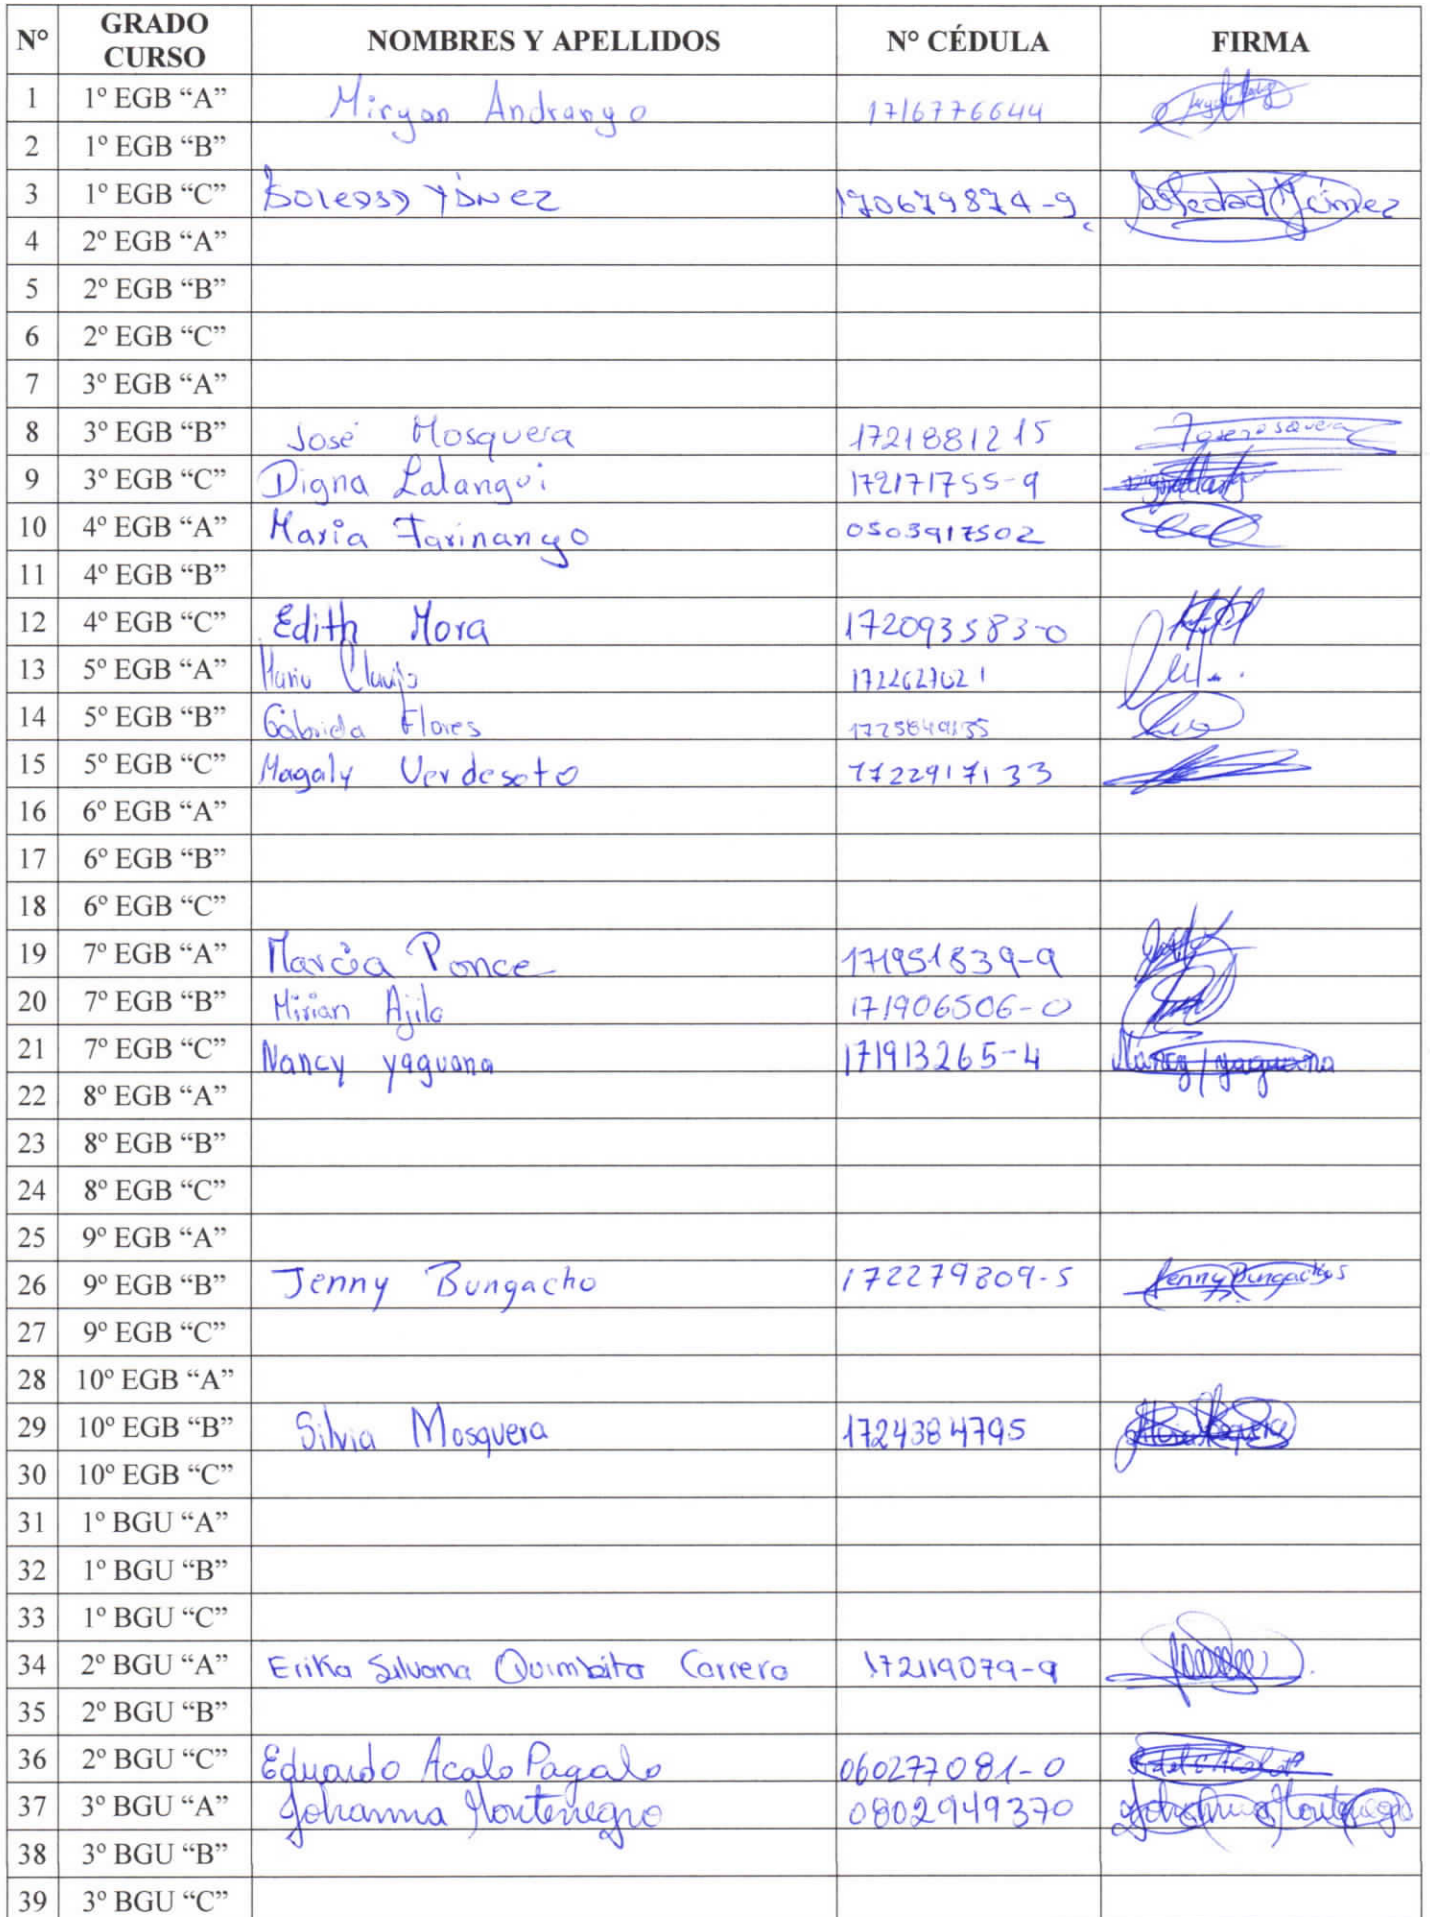 N° GRADO CURSO NOMBRES Y APELLIDOS N° CÉDULA FIRMA
1 1º EGB “A” Miryan Andrango 1716776644
2 1º EGB “B”
3 1º EGB “C” Soledad Yánez 170679874-9 Soledad Yánez
4 2º EGB “A”
5 2º EGB “B”
6 2º EGB “C”
7 3º EGB “A”
8 3º EGB “B” José Mosquera 1721881215
9 3º EGB “C” Digna Lalangui 172171755-9
10 4º EGB “A” María Farinango 0503917502
11 4º EGB “B”
12 4º EGB “C” Edith Mora 172093583-0
13 5º EGB “A”
14 5º EGB “B” Gabriela Flores
15 5º EGB “C” Magaly Verdesoto 1722917133
16 6º EGB “A”
17 6º EGB “B”
18 6º EGB “C”
19 7º EGB “A” Marcia Ponce 171951839-9
20 7º EGB “B” Mirian Ajila 171906506-0
21 7º EGB “C” Nancy yaguana 171913265-4 Nancy yaguana
22 8º EGB “A”
23 8º EGB “B”
24 8º EGB “C”
25 9º EGB “A”
26 9º EGB “B” Jenny Bungacho 172279809-5 Jenny Bungacho
27 9º EGB “C”
28 10º EGB “A”
29 10º EGB “B” Silvia Mosquera 1724384795
30 10º EGB “C”
31 1º BGU “A”
32 1º BGU “B”
33 1º BGU “C”
34 2º BGU “A” Erika Silvana Quimbita Carrera 172119079-9
35 2º BGU “B”
36 2º BGU “C” Eduardo Acalo Pagalo 060277081-0
37 3º BGU “A” Johanna Montenegro 0802949370 Johanna Montenegro
38 3º BGU “B”
39 3º BGU “C”